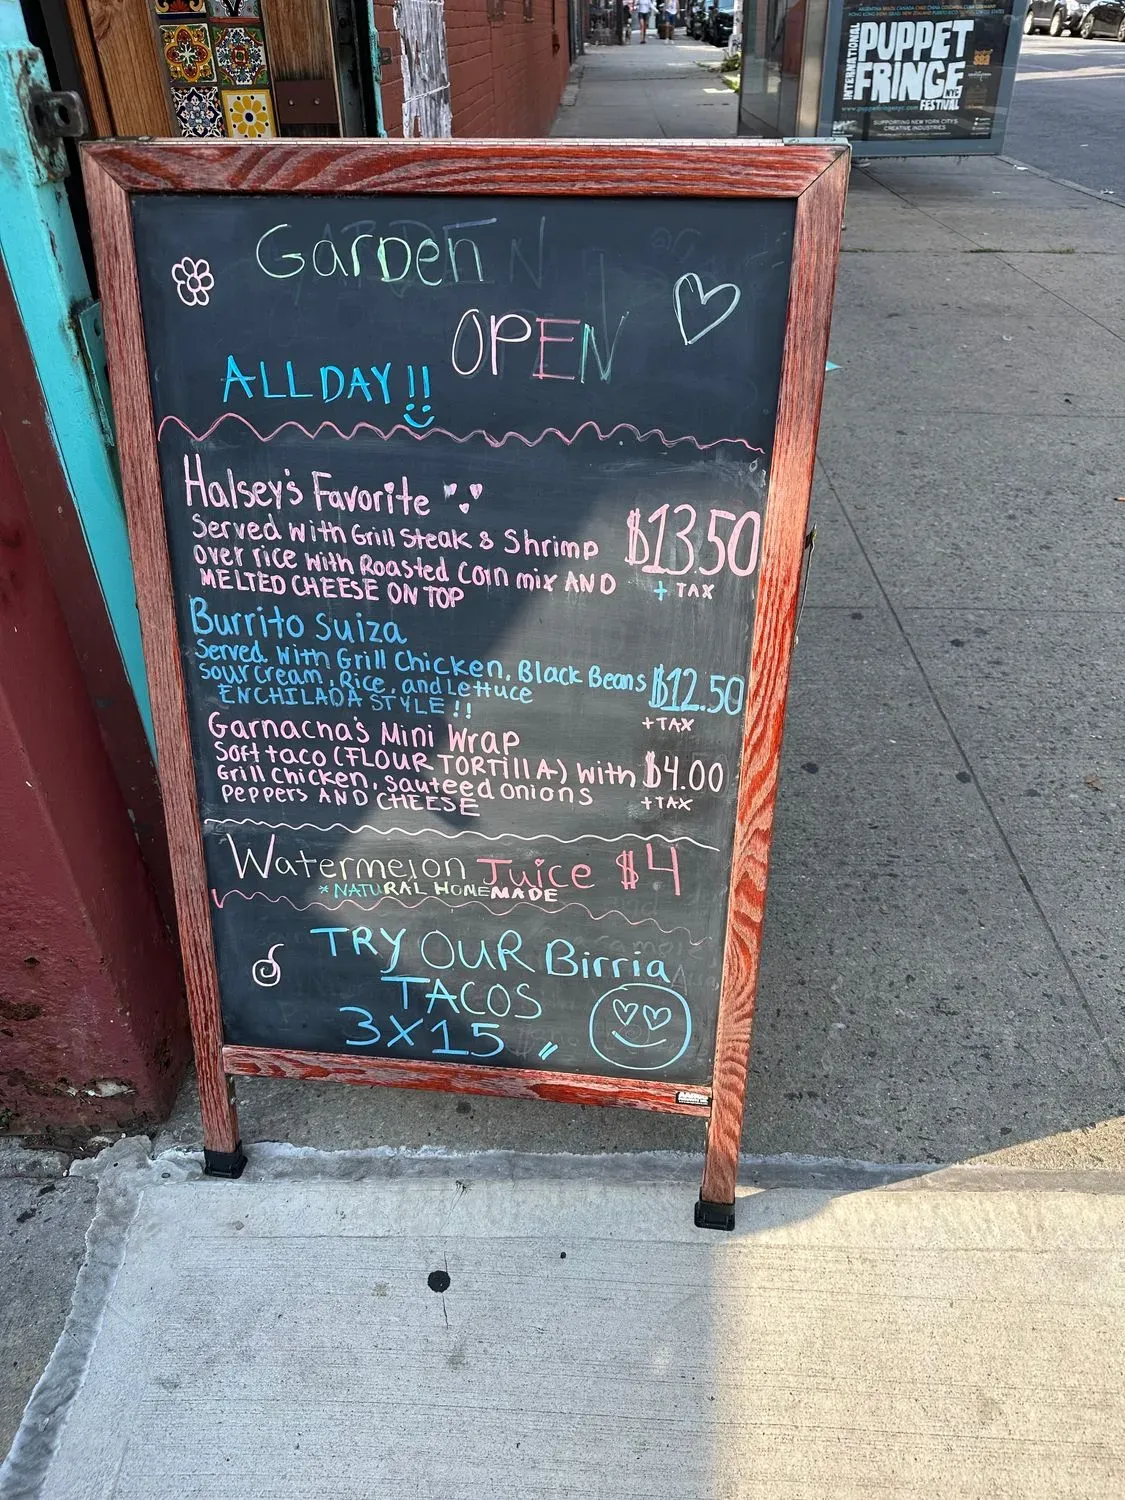 ARGENTINA BRAZIL CANADA CHILE CHINA COLOMBIA CUBA GERMANY
INTERNATIONAL
PUPPET
FRINGE
NYC
FESTIVAL
SUPPORTING NEW YORK CITY'S
CREATIVE INDUSTRIES
GARDEN
OPEN
ALL DAY!!
Halsey's Favorite
Served with Grill Steak & Shrimp
over rice with Roasted Corn mix AND
MELTED CHEESE ON TOP
$13.50
+ TAX
Burrito Suiza
Served with Grill Chicken, Black Beans
sour cream, Rice, and Lettuce
ENCHILADA STYLE!!
$12.50
+TAX
Garnacha's Mini Wrap
Soft taco (FLOUR TORTILLA) with
Grill Chicken, sauteed onions
Peppers AND CHEESE
$4.00
+TAX
Watermelon Juice $4
*NATURAL HOMEMADE
TRY OUR Birria
TACOS
3X15